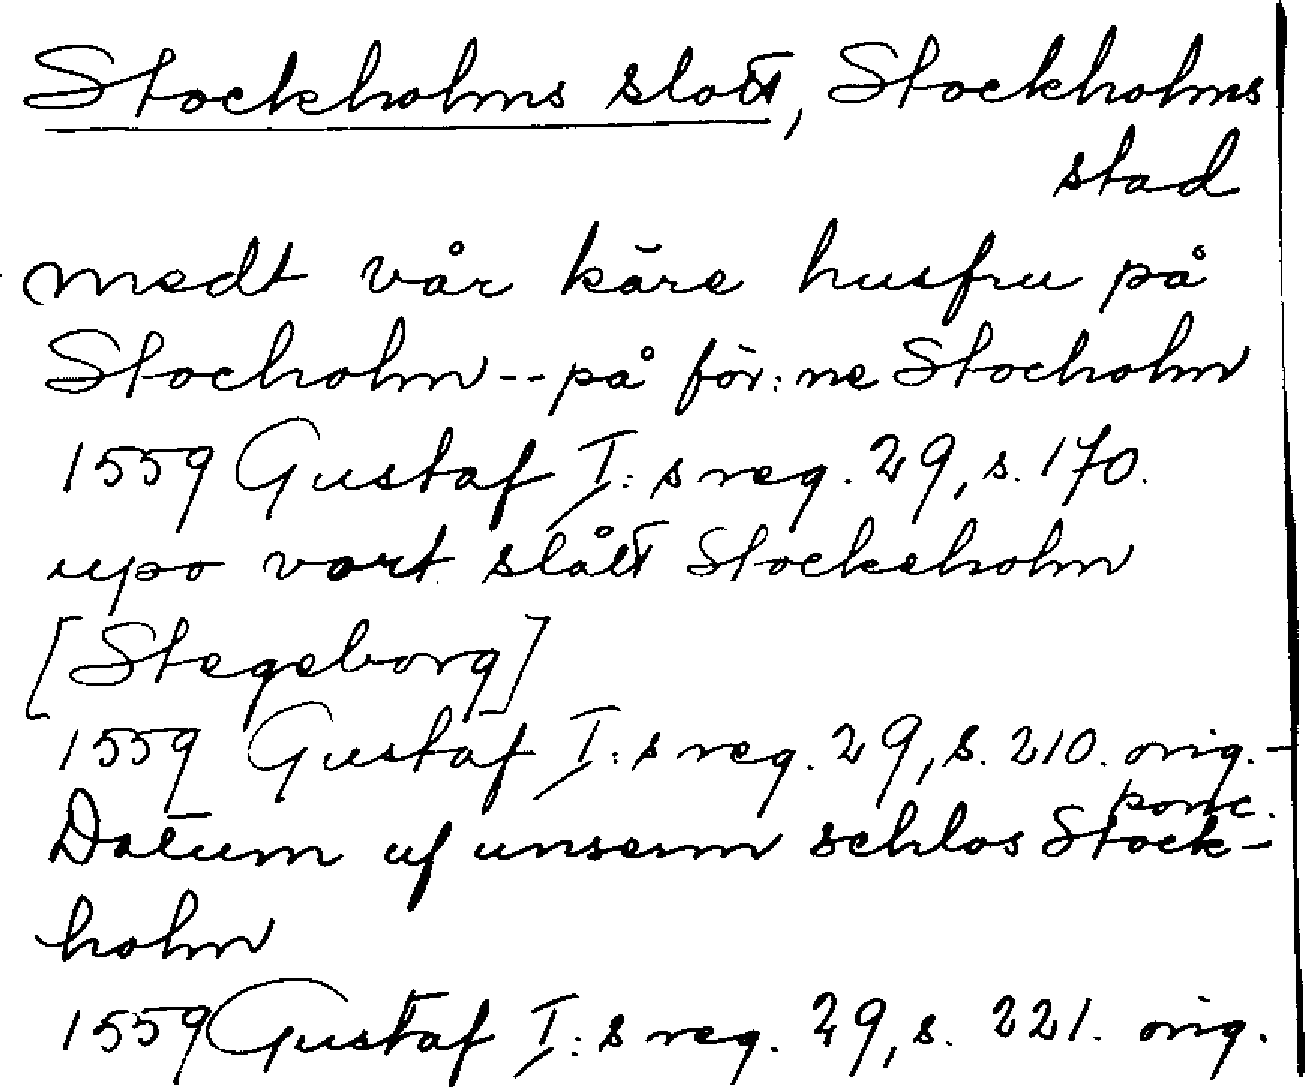 Stockholms slott, Stockholms
stad
medt vår käre husfru på
Stocholm -- på för:ne Stocholm
1559 Gustaf I:s reg. 29, s. 170.
upo vort slått Stockeholm
[Stegeborg]
1559 Gustaf I:s reg. 29, s. 210. orig.-
konc.
Datum uf unserm schlos Stock-
holm
1559 Gustaf I:s reg. 29, s. 221. orig.